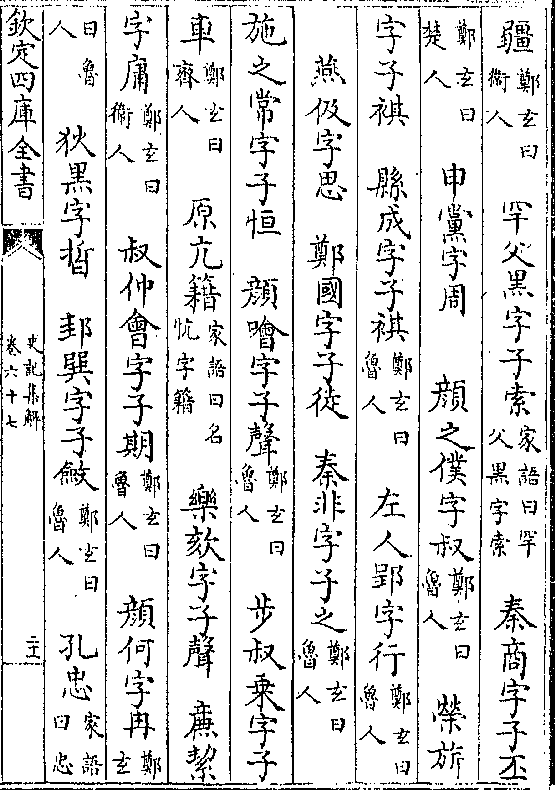 疆鄭玄曰衛人　罕父黑字子索家語曰罕父黑字索　秦商字子丕
鄭玄曰楚人　申黨字周　顔之僕字叔鄭玄曰魯人　榮旂
字子祺　縣成字子祺鄭玄曰魯人　左人郢字行鄭玄曰魯人
燕伋字思　鄭國字子徒　秦非字子之鄭玄曰魯人
施之常字子恒　顔噲字子聲鄭玄曰魯人　步叔乗字子
車鄭玄曰齊人　原亢籍家語曰名忼字籍　樂欬字子聲　廉絜
字庸鄭玄曰衛人　叔仲會字子期鄭玄曰魯人　顔何字冉鄭玄
曰魯人　狄黒字晳　邽巽字子斂鄭玄曰魯人　孔忠家語曰忠
欽定四庫全書
史記集解
卷六十七